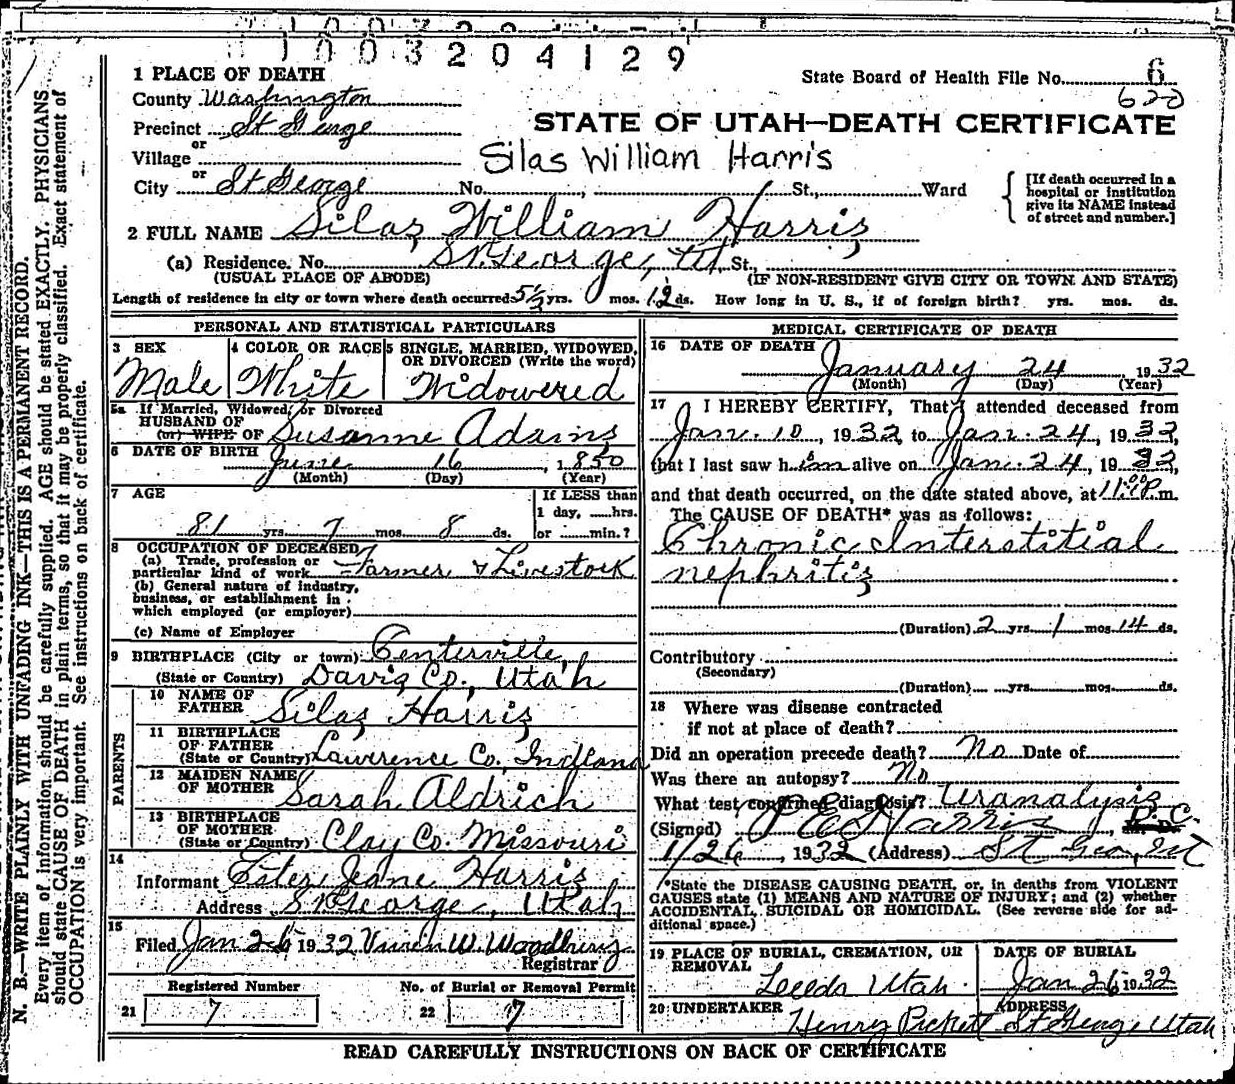 1003204129
1 PLACE OF DEATH
State Board of Health File No. 6
620
County Washington
Precinct St George
STATE OF UTAH—DEATH CERTIFICATE
or
Village
Silas William Harris
or
City St. George No. , St., Ward
[If death occurred in a
hospital or institution
give its NAME instead
of street and number.]
2 FULL NAME Silas William Harris
(a) Residence. No. St. George, Ut. St.,
(USUAL PLACE OF ABODE) (IF NON-RESIDENT GIVE CITY OR TOWN AND STATE)
Length of residence in city or town where death occurred 5½ yrs. 0 mos. 12 ds. How long in U. S., if of foreign birth? yrs. mos. ds.
PERSONAL AND STATISTICAL PARTICULARS
3 SEX 4 COLOR OR RACE 5 SINGLE, MARRIED, WIDOWED,
OR DIVORCED (Write the word)
Male White Widowered
5a If Married, Widowed, or Divorced
HUSBAND OF
(or) WIFE OF Susanne Adams
6 DATE OF BIRTH June 16, 1850
(Month) (Day) (Year)
7 AGE
If LESS than
1 day, ......hrs.
81 yrs. 7 mos. 8 ds. or ......min.?
8 OCCUPATION OF DECEASED
(a) Trade, profession or
particular kind of work Farmer & Livestock
(b) General nature of industry,
business, or establishment in
which employed (or employer)
(c) Name of Employer
9 BIRTHPLACE (City or town) Centerville,
(State or Country) Davis Co., Utah
PARENTS
10 NAME OF
FATHER Silas Harris
11 BIRTHPLACE
OF FATHER
(State or Country) Lawrence Co., Indiana
12 MAIDEN NAME
OF MOTHER Sarah Aldrich
13 BIRTHPLACE
OF MOTHER
(State or Country) Clay Co. Missouri
14
Informant Ester Jane Harris
Address St George, Utah
15
Filed Jan 26 1932 Vivien W. Woodbury
Registrar
Registered Number No. of Burial or Removal Permit
21 7 22 7
MEDICAL CERTIFICATE OF DEATH
16 DATE OF DEATH
January 24, 1932
(Month) (Day) (Year)
17 I HEREBY CERTIFY, That I attended deceased from
Jan. 10, 1932, to Jan. 24, 1932,
that I last saw him alive on Jan. 24, 1932,
and that death occurred, on the date stated above, at 11:00 P.m.
The CAUSE OF DEATH* was as follows:
Chronic Interstitial
nephritis
(Duration) 2 yrs. 1 mos. 14 ds.
Contributory
(Secondary)
(Duration) yrs. mos. ds.
18 Where was disease contracted
if not at place of death?
Did an operation precede death? No Date of
Was there an autopsy? No
What test confirmed diagnosis? Uranalysis
(Signed) Harris, D.C.
1/26, 1932 (Address) St Geo, Ut
*State the DISEASE CAUSING DEATH, or, in deaths from VIOLENT
CAUSES state (1) MEANS AND NATURE OF INJURY; and (2) whether
ACCIDENTAL, SUICIDAL OR HOMICIDAL. (See reverse side for ad-
ditional space.)
19 PLACE OF BURIAL, CREMATION, OR
REMOVAL
Leeds Utah
DATE OF BURIAL
Jan 26 1932
20 UNDERTAKER
Henry Pickett
ADDRESS
St George Utah
READ CAREFULLY INSTRUCTIONS ON BACK OF CERTIFICATE
N. B.—WRITE PLAINLY WITH UNFADING INK—THIS IS A PERMANENT RECORD.
Every item of information should be carefully supplied. AGE should be stated EXACTLY. PHYSICIANS
should state CAUSE OF DEATH in plain terms, so that it may be properly classified. Exact statement of
OCCUPATION is very important. See instructions on back of certificate.